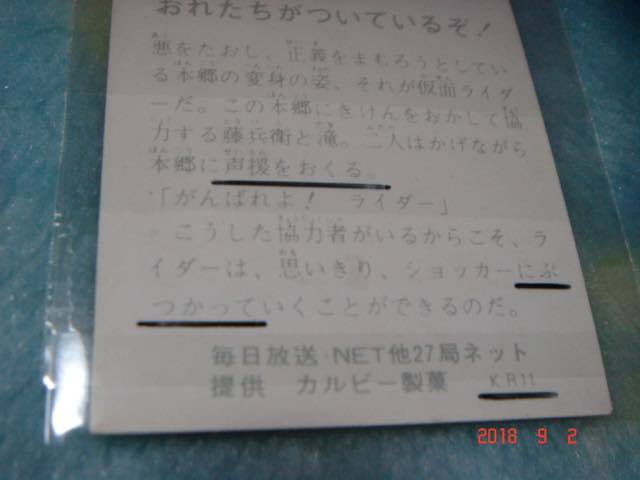 おれたちがついているぞ!
悪をたおし、正義をまもろうとしてい
る本郷の変身の姿、それが仮面ライダ
ーだ。この本郷にきけんをおかして協
力する藤兵衛と滝。二人はかげながら
本郷に声援をおくる。
「がんばれよ! ライダー」
こうした協力者がいるからこそ、ラ
イダーは、思いきり、ショッカーにぶ
つかっていくことができるのだ。
毎日放送 NET他27局ネット
提供 カルビー製菓 KR11
2018 9 2